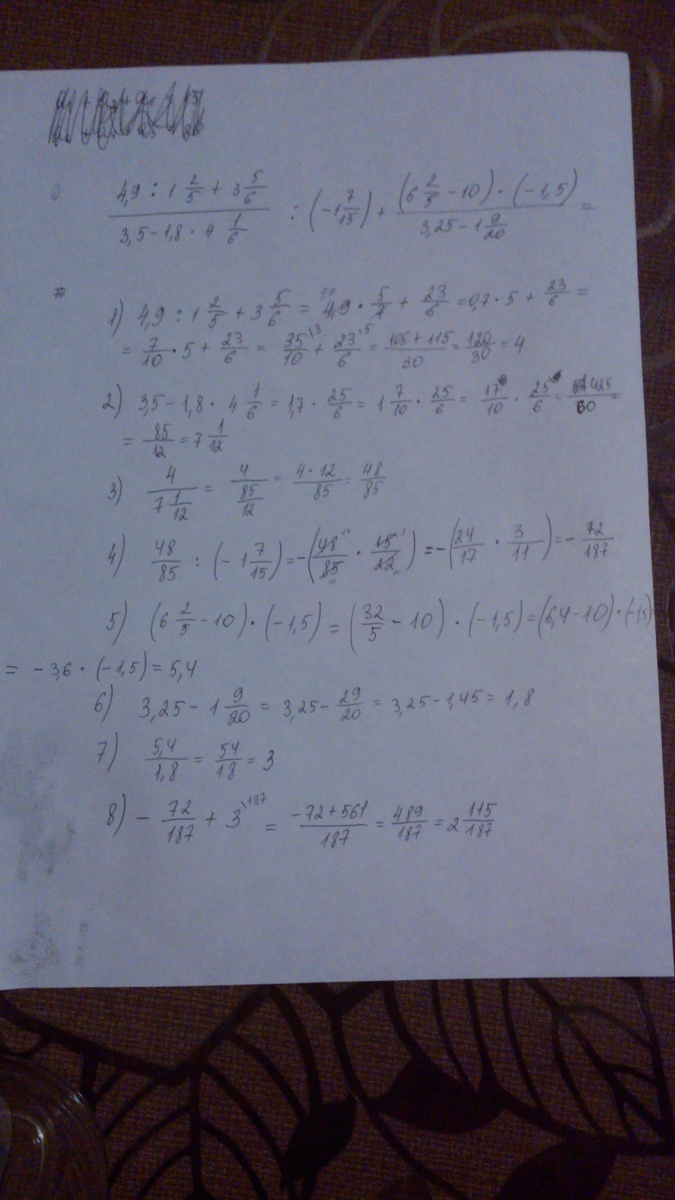 (4,9 : 1 2/5 + 3 5/6)/(3,5 - 1,8 · 4 1/6) : (-1 7/15) + ((6 2/5 - 10) · (-1,5))/(3,25 - 1 9/20) =
1) 4,9 : 1 2/5 + 3 5/6 = 4,9 · 5/7 + 23/6 = 0,7 · 5 + 23/6 =
= 7/10 · 5 + 23/6 = 35/10 \3 + 23/6 \5 = (105 + 115)/30 = 120/30 = 4
2) 3,5 - 1,8 · 4 1/6 = 1,7 · 25/6 = 1 7/10 · 25/6 = 17/10 · 25/6 = 425/60 =
= 85/12 = 7 1/12
3) 4/(7 1/12) = 4/(85/12) = (4 · 12)/85 = 48/85
4) 48/85 : (-1 7/15) = -(48/85 · 15/22) = -(24/17 · 3/11) = -72/187
5) (6 2/5 - 10) · (-1,5) = (32/5 - 10) · (-1,5) = (6,4 - 10) · (-1,5)
= -3,6 · (-1,5) = 5,4
6) 3,25 - 1 9/20 = 3,25 - 29/20 = 3,25 - 1,45 = 1,8
7) 5,4/1,8 = 54/18 = 3
8) -72/187 + 3 \187 = (-72 + 561)/187 = 489/187 = 2 115/187